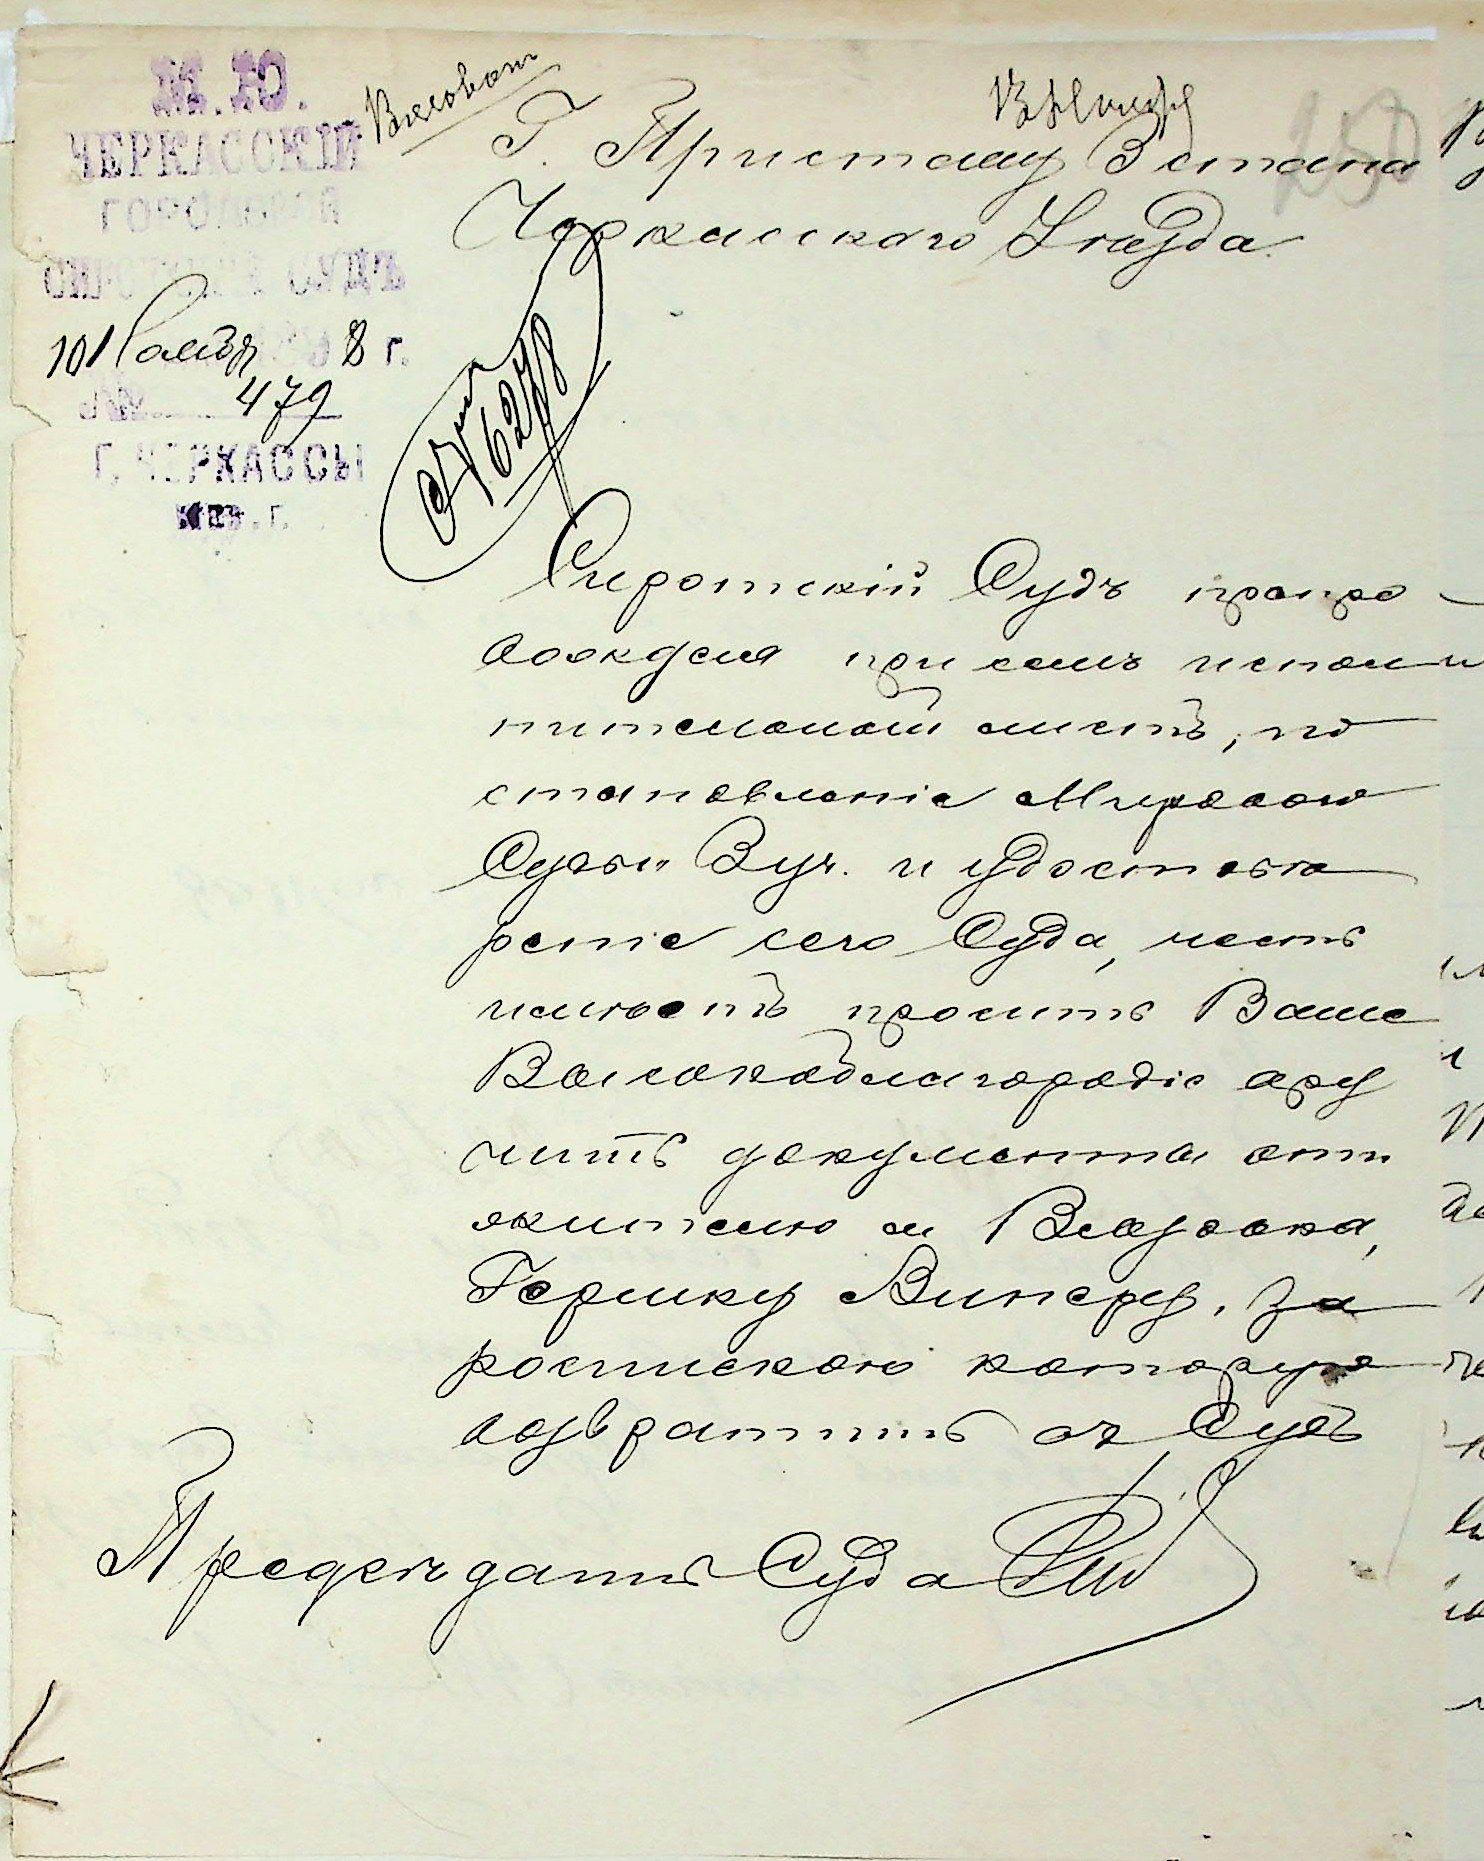 М.Ю.
ЧЕРКАССКІЙ
ГОРОДСКОЙ
СИРОТСКІЙ СУДЪ
101 8 г.
№ 479
Г. ЧЕРКАССЫ
КІЕВ. Г.
Г. Приставу 3 стана
Черкасскаго Уѣзда.
250
№ 6278
Сиротскій Судъ препро-
вождая при семъ исполн
нительный листъ, по
становленіе Мирового
Судьи 3 уч. и удостовѣ
реніе сего Суда, честь
имѣетъ просить Ваше
Высокоблагородіе вру
чить документы эти
жителю м
Гершку Винеру, за
роспискою которую
возвратить въ Судъ
Предсѣдатель Суда